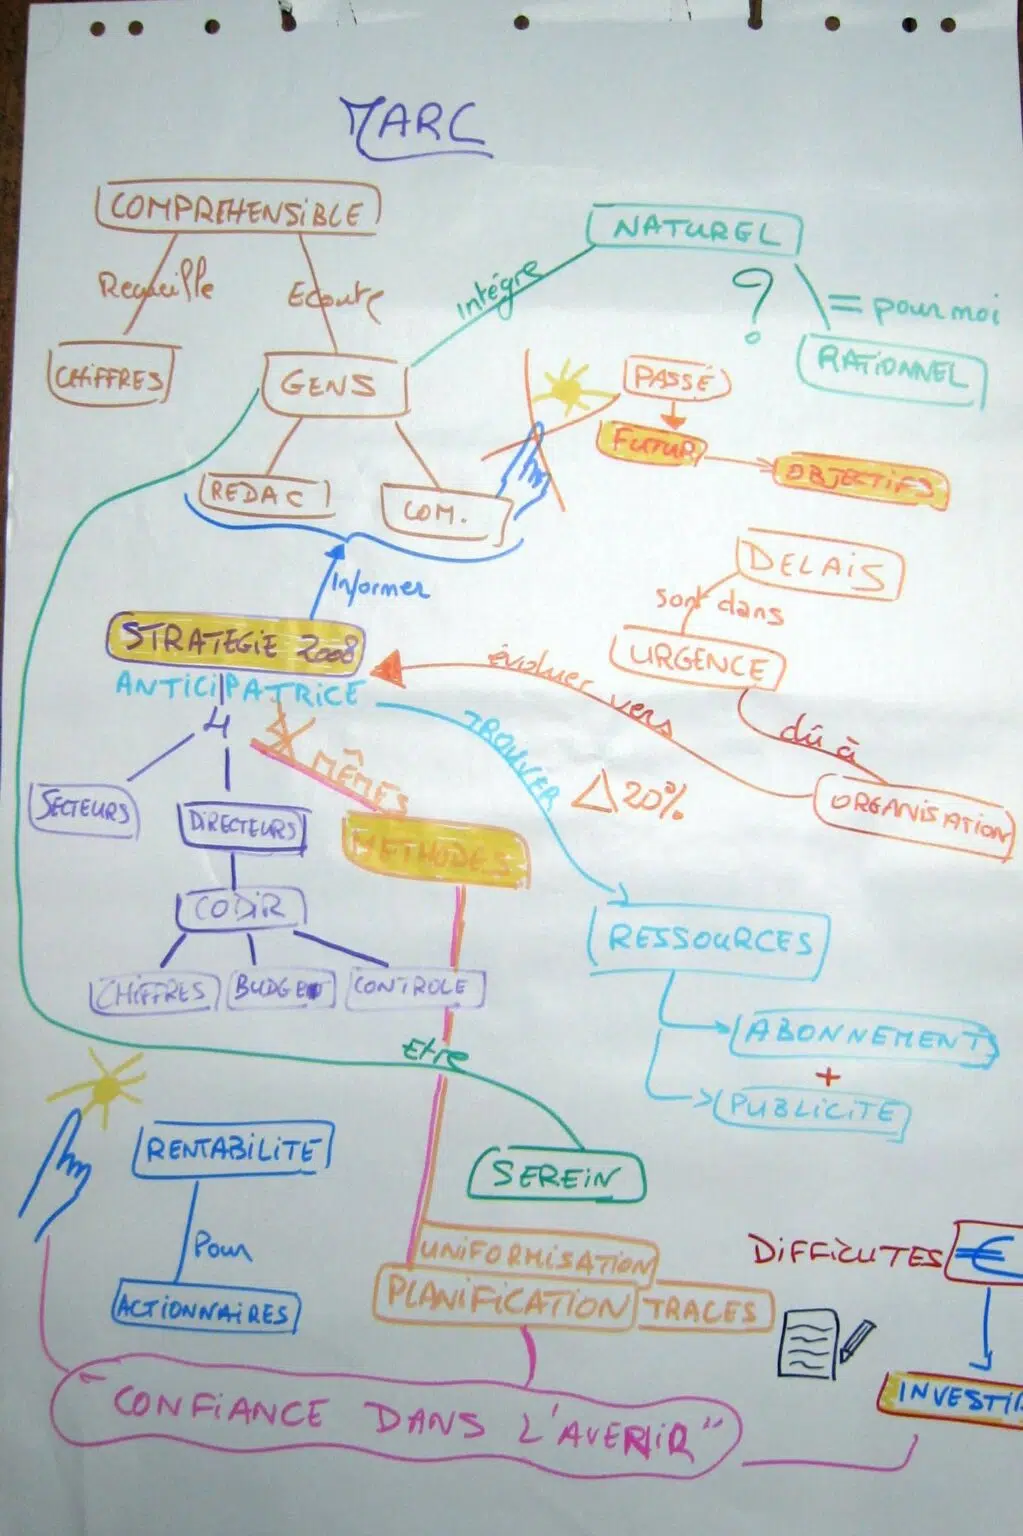 MARC
COMPREHENSIBLE
NATUREL
Recueille
Ecoute
intègre
?
= pour moi
CHIFFRES
GENS
PASSÉ
RATIONNEL
FUTUR
OBJECTIFS
REDAC
COM.
DELAIS
informer
sont dans
STRATEGIE 2008
URGENCE
évoluer vers
ANTICIPATRICE
4
TROUVER
dû à
MÊMES
Δ 20%
SECTEURS
DIRECTEURS
ORGANISATION
METHODES
CODIR
RESSOURCES
CHIFFRES
BUDGET
CONTROLE
ABONNEMENT
Etre
+
PUBLICITE
RENTABILITE
SEREIN
Pour
UNIFORMISATION
DIFFICUTES
€
ACTIONNAIRES
PLANIFICATION
TRACES
INVESTIR
"CONFIANCE DANS L'AVENIR"